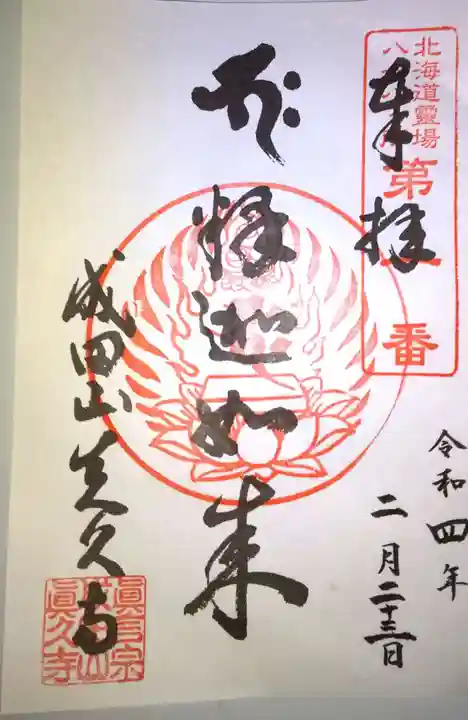 北海道霊場
八十八ヶ所
第一番
奉拝
令和四年
二月二十三日
釋迦如来
成田山真久寺
眞言宗
眞久寺